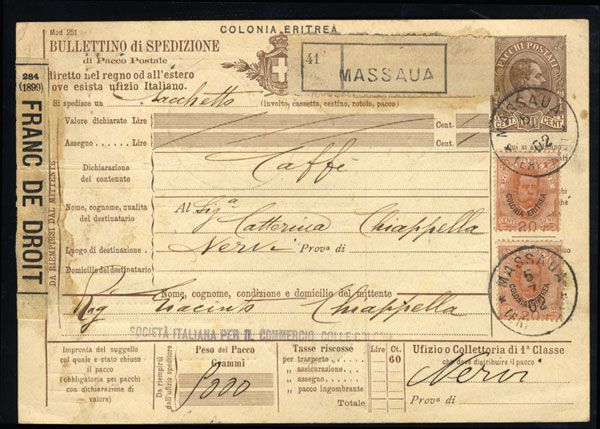 COLONIA ERITREA
Mod 251
BULLETTINO di SPEDIZIONE
di Pacco Postale
diretto nel regno od all'estero
ove esista ufizio Italiano.
41
MASSAUA
PACCHI POSTALI
CENT.
CENT
MASSAUA
Si spedisce un Sacchetto (Involto, cassetta, cestino, rotolo, pacco)
284
(1899)
FRANC DE DROIT
DA RIEMPIRSI DAL MITTENTE
Valore dichiarato Lire
Cent.
Assegno . . Lire
Cent.
Dichiarazione
del contenuto
Caffè
COLONIA ERITREA
20
Nome, cognome, qualita
del destinatario
Al Sigª Catterina Chiappella
Luogo di destinazione
Nervi
Prova di
Domicilio del destinatario
MASSAUA
5
7
02
COLONIA ERITREA
20
Nome, cognome, condizione e domicilio del mittente
Rag Giacinto Chiappella
SOCIETÀ ITALIANA PER IL COMMERCIO
Impronta del suggello
col quale e stato chiuso
il pacco
(obbligatoria per pacchi
con dichiarazione di
valore)
Da riempirsi
dall'ufizio speditore
Peso del Pacco
Grammi
5000
Tasse riscosse
Lire
Ct.
per trasporto
60
„ assicurazione
„ assegno
„ pacco ingombrante
Totale
Ufizio o Collettoria di 1ª Classe
che deve distribuire il pacco
Nervi
Prova di